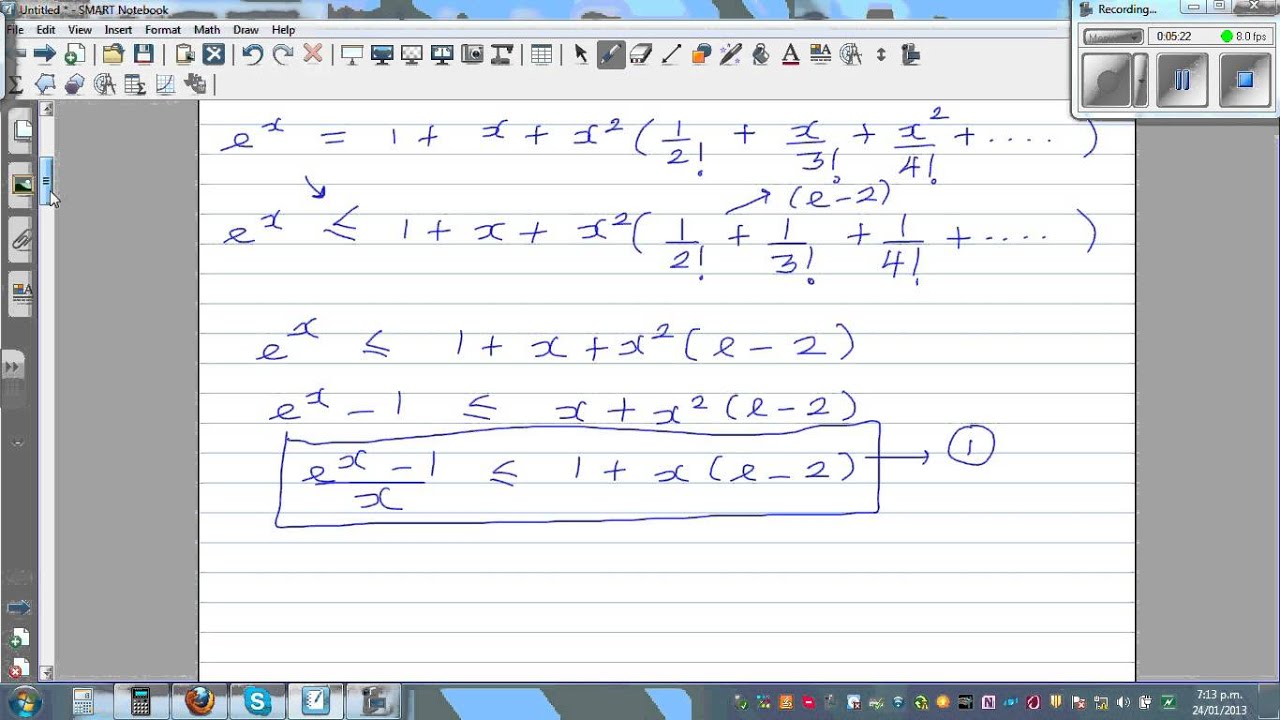 Untitled * - SMART Notebook
File Edit View Insert Format Math Draw Help
Recording...
0:05:22 8.0 fps
e^x = 1 + x + x^2 ( 1/2! + x/3! + x^2/4! + .... )
(e-2)
e^x ≤ 1 + x + x^2 ( 1/2! + 1/3! + 1/4! + .... )
e^x ≤ 1 + x + x^2 (e - 2)
e^x - 1 ≤ x + x^2 (e - 2)
(e^x - 1)/x ≤ 1 + x (e - 2) → ①
7:13 p.m.
24/01/2013